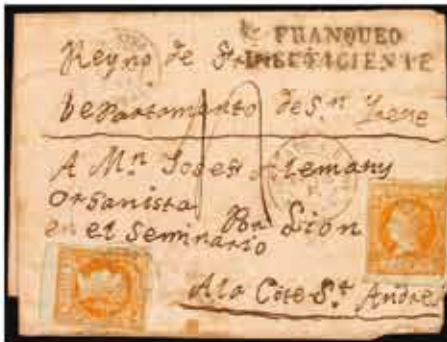 FRANQUEO
INSUFICIENTE
Reyno de
Departamento de S.n Yere
A Mn. Josef Alemany
Organista
en el Seminario
Por Lion
A la Côte St. André